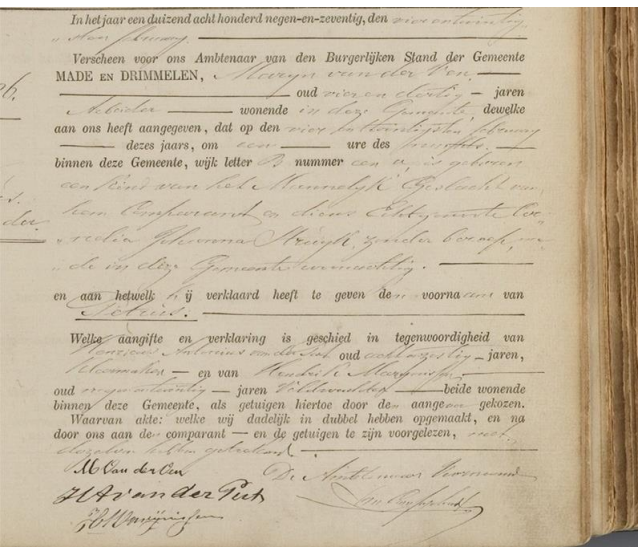 In het jaar een duizend acht honderd negen-en-zeventig, den vier en twintig
sten february.
Verscheen voor ons Ambtenaar van den Burgerlijken Stand der Gemeente
MADE EN DRIMMELEN, Maryn van der
oud vier en dertig jaren
Arbeider wonende in deze Gemeente, dewelke
aan ons heeft aangegeven, dat op den vier en twintigsten february
dezes jaars, om een ure des
binnen deze Gemeente, wijk letter B nummer een a, is geboren
een kind van het Mannelijk Geslacht van
hem Comparant en diens Echtgenoote Cor
nelia Johanna zonder beroep,
de in deze Gemeente woonachtig.
en aan hetwelk hij verklaard heeft te geven den voornaam van
Petrus.
Welke aangifte en verklaring is geschied in tegenwoordigheid van
Antonius van der oud acht en zestig jaren,
en van Hendrik
oud jaren Veldwachter beide wonende
binnen deze Gemeente, als getuigen hiertoe door den aangever gekozen.
Waarvan akte: welke wij dadelijk in dubbel hebben opgemaakt, en na
door ons aan den comparant en de getuigen te zijn voorgelezen, met
dezelven hebben geteekend.
M van der
De Ambtenaar voornoemd
van der